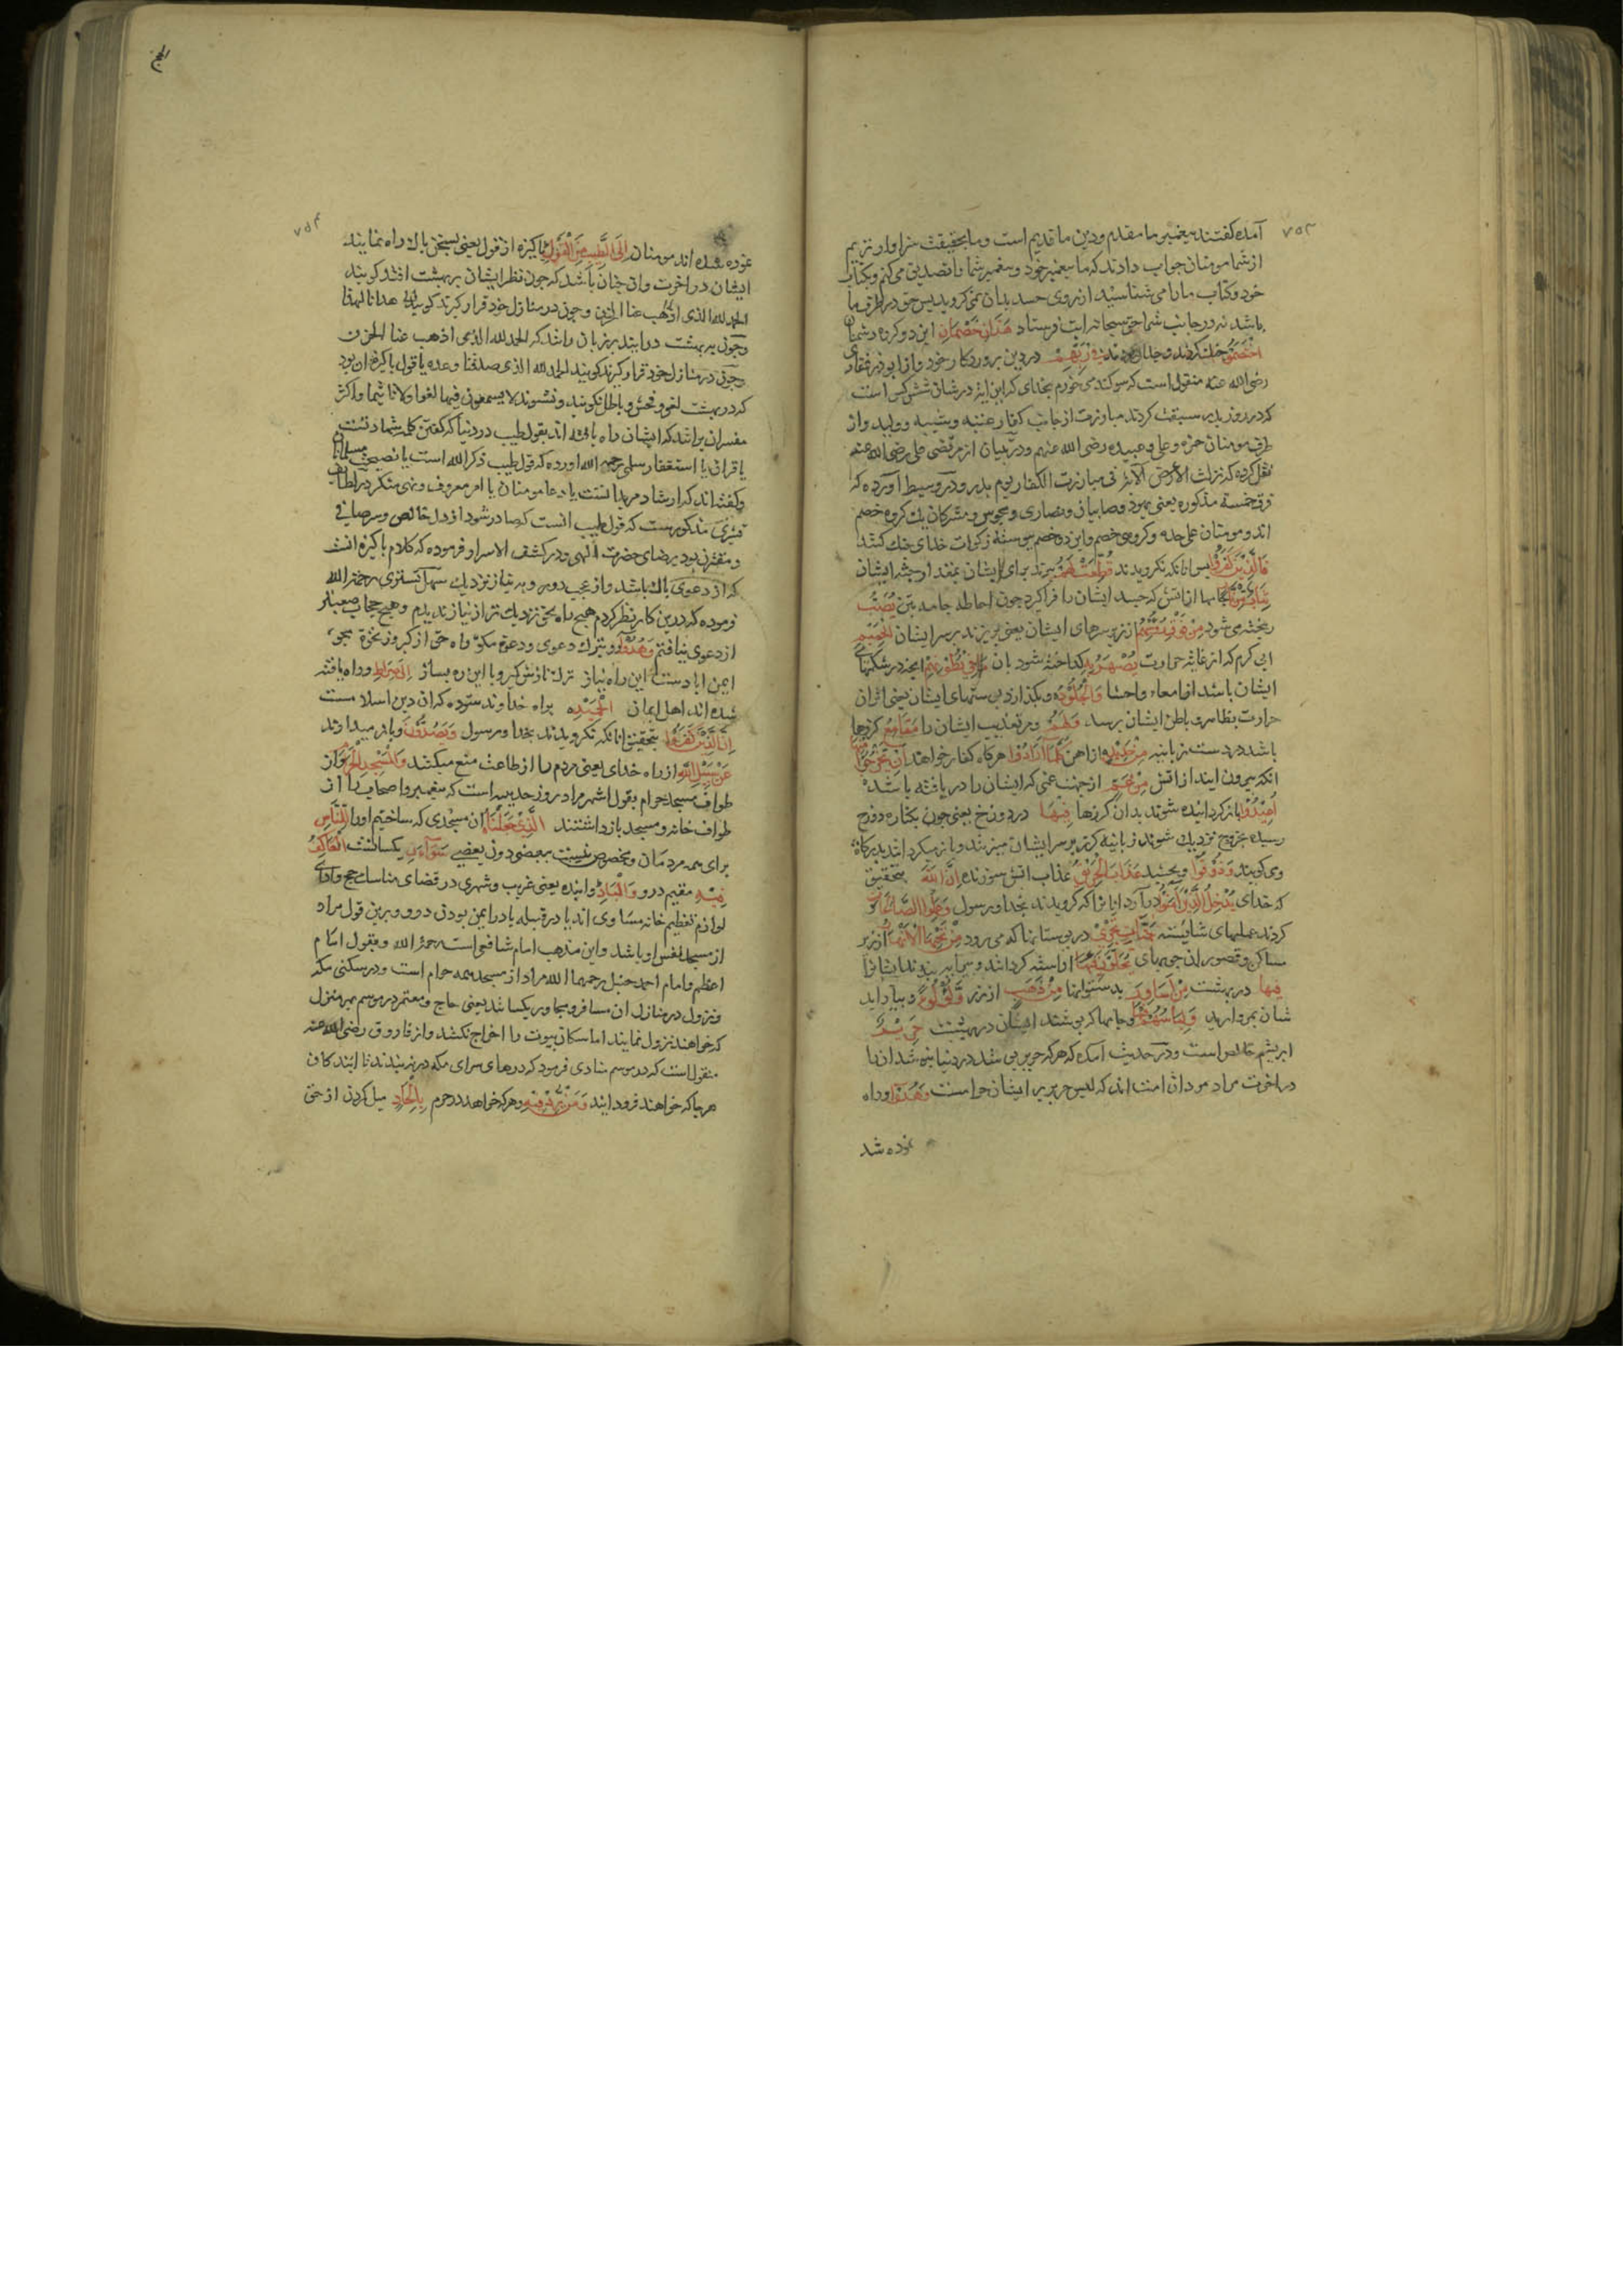 ۷۵۳
آمده گفتند پیغمبر ما مقدم و دین ما قدیم است و ما بحقیقت سزاوارتریم
از شما مومنان جواب دادند که ما پیغمبر خود و پیغمبر شما را تصدیق می کنیم و بکتاب
خود و کتاب ما را می شناسید از روی حسد بدان نمی کروید پس حق در طرف ما
باشد نه در جانب شما حق سبحانه این آیت فرستاد هَذَانِ خَصْمَانِ این دو کروه دشمنان
اخْتَصَمُوا جنک کردند و جدال فِي رَبِّهِمْ در دین پروردکار خود و از ابوذر غفاری
رضی الله عنه منقول است که سوکند می خورم بخدای که این آیة در شان شش کس است
که در روز بدر سبقت کردند مبارزت از جانب کفار عتبه و شیبه و ولید و از
طرف مومنان حمزه و علی و عبیده رضی الله عنهم و در تبیان از مرتضی علی رضی الله عنه
نقل کرده که نزلت الآیة فی مبارزت الکفار یوم بدر و در وسیط آورده که
فرق خمسة مذکوره یعنی یهود و صابیان و نصاری و مجوس و مشرکان یک کروه خصم
اند و مومنان علی حده و کروهی خصم و این دو خصم پیوسته در ذات خدای جنک کنند
فَالَّذِينَ كَفَرُوا پس آنانکه نکرویدند قُطِّعَتْ لَهُمْ ببرند برای ایشان بمقدار جثه ایشان
ثِيَابٌ مِنْ نَارٍ جامها از آتش که جسد ایشان را فرا کیرد چون احاطه جامه بتن يُصَبُّ
ریخته می شود مِنْ فَوْقِ رُؤُسِهِمُ از زبر سرهای ایشان یعنی بریزند بر سر ایشان الْحَمِيمُ
آبی کرم که از غایت حرارت يُصْهَرُ بِهِ کداخته شود بآن مَا فِي بُطُونِهِمْ آنچه در شکمهای
ایشان باشد از امعاء و احشا وَالْجُلُودُ و بکدازد پوستهای ایشان یعنی اثر آن
حرارت بظاهر و باطن ایشان برسد وَلَهُمْ و مر تعذیب ایشان را مَقَامِعُ کرزها
باشد در دست زبانیه مِنْ حَدِيدٍ از آهن كُلَّمَا أَرَادُوا هرکاه کفار خواهند أَنْ يَخْرُجُوا مِنْهَا
آنکه بیرون آیند از آتش مِنْ غَمٍّ از جهت غمی که ایشان را دریافته باشد
أُعِيدُوا باز کردانیده شوند بدان کرزها فِيهَا در دوزخ یعنی چون بکناره دوزخ
رسیده بخروج نزدیک شوند زبانیه کرز بر سر ایشان میزنند و باز میکردانند بدرکات
و می کویند وَذُوقُوا و بچشید عَذَابَ الْحَرِيقِ عذاب آتش سوزنده إِنَّ اللَّهَ بتحقیق
که خدای يُدْخِلُ الَّذِينَ آمَنُوا درآرد آنانرا که کرویدند بخدا و رسول وَعَمِلُوا الصَّالِحَاتِ و
کردند عملهای شایسته جَنَّاتٍ تَجْرِي در بوستانها که می رود مِنْ تَحْتِهَا الْأَنْهَارُ از زیر
مساکن و قصور آن جویهای يُحَلَّوْنَ فِيهَا آراسته کردانند و پیرایه بندند ایشانرا
فِيهَا در بهشت مِنْ أَسَاوِرَ بدستوانها مِنْ ذَهَبٍ از زر وَلُؤْلُؤًا و بیاراید
شان بمروارید وَلِبَاسُهُمْ فِيهَا و جامها که پوشند ایشان در بهشت حَرِيرٌ
ابریشم خالص است و در حدیث آمده که هر که حریر پوشد در دنیا نپوشد آن را
در آخرت مراد مردان امت اند که لبس حریر بر ایشان حرامست وَهُدُوا و راه
نموده شد
الحج
۷۵۴
نموده شده اند مومنان إِلَى الطَّيِّبِ مِنَ الْقَوْلِ بپاکیزه از قول یعنی بسخن پاک راه نمایند
ایشان در آخرت و آن چنان باشد که چون نظر ایشان بر بهشت افتد کویند
الحمد لله الذی هدانا لهذا
و چون به بهشت درآیند بر زبان رانند که الحمد لله الذی اذهب عنا الحزن
و چون در منازل خود قرار کیرند کویند الحمد لله الذی صدقنا وعده یا قول پاکیزه آن بود
که در بهشت لغو و فحش و باطل نکویند و نشنوند لا یسمعون فیها لغوا ولا تاثیما و اکثر
مفسران برانند که ایشان راه یافته اند بقول طیب در دنیا که کفتن کلمه شهادتست
یا قرآن یا استغفار سلمی رحمه الله آورده که قول طیب ذکر الله است یا نصیحت مسلمانان
و کفته اند که ارشاد مریدانست یا دعا مومنان یا امر معروف و نهی منکر در لطایف
قشیری مذکورست که قول طیب آنست که صادر شود از دل خالص و سر صافی
و مقترن بود برضای حضرت الهی و در کشف الاسرار فرموده که کلام پاکیزه آنست
که از دعوی پاک باشد و از عجب دور و به نیاز نزدیک سهل تستری رحمه الله
فرموده که درین کار نظر کردم هیچ راه بحق نزدیک تر از نیاز ندیدم و هیچ حجاب صعبتر
از دعوی نیافتم وَهُدُوا
ایمن آبادست این راه نیاز ترک نازش کیر و با این ره بساز إِلَى صِرَاطِ و راه یافته
شده اند اهل ایمان الْحَمِيدِ براه خداوند ستوده که آن دین اسلامست
إِنَّ الَّذِينَ كَفَرُوا بتحقیق آنانکه نکرویدند بخدا و رسول وَيَصُدُّونَ و باز میدارند
عَنْ سَبِيلِ اللَّهِ از راه خدای یعنی مردم را از طاعت منع میکنند وَالْمَسْجِدِ الْحَرَامِ و از
طواف مسجد حرام بقول اشهر مراد روز حدیبیه است که پیغمبر و اصحاب را از
طواف خانه و مسجد بازداشتند الَّذِي جَعَلْنَاهُ آن مسجدی که ساختیم او را لِلنَّاسِ
برای همه مردمان و مخصوص نیست ببعضی دون بعضی سَوَاءً یکسانست الْعَاكِفُ
فِيهِ مقیم درو وَالْبَادِ و آینده یعنی غریب و شهری در قضای مناسک حج و ادای
لوازم تعظیم خانه مساوی اند یا در قبله یا در ایمن بودن درو و برین قول مراد
از مسجد نفس او باشد و این مذهب امام شافعی است رحمه الله و بقول امام
اعظم و امام احمد حنبل رحمهما الله مراد از مسجد همه حرام است و در سکنی مکه
و نزول در منازل آن مسافر و مجاور یکسانند یعنی حاج و معتمر در موسم بهر منزل
که خواهند نزول نمایند اما سکان بیوت را اخراج نکنند و از فاروق رضی الله عنه
منقول است که در موسم منادی فرمود که درهای سرای مکه در نبندند تا آیندکان
هرجا که خواهند فرود آیند وَمَنْ يُرِدْ فِيهِ و هر که خواهد در حرم بِإِلْحَادٍ میل کردن از حق